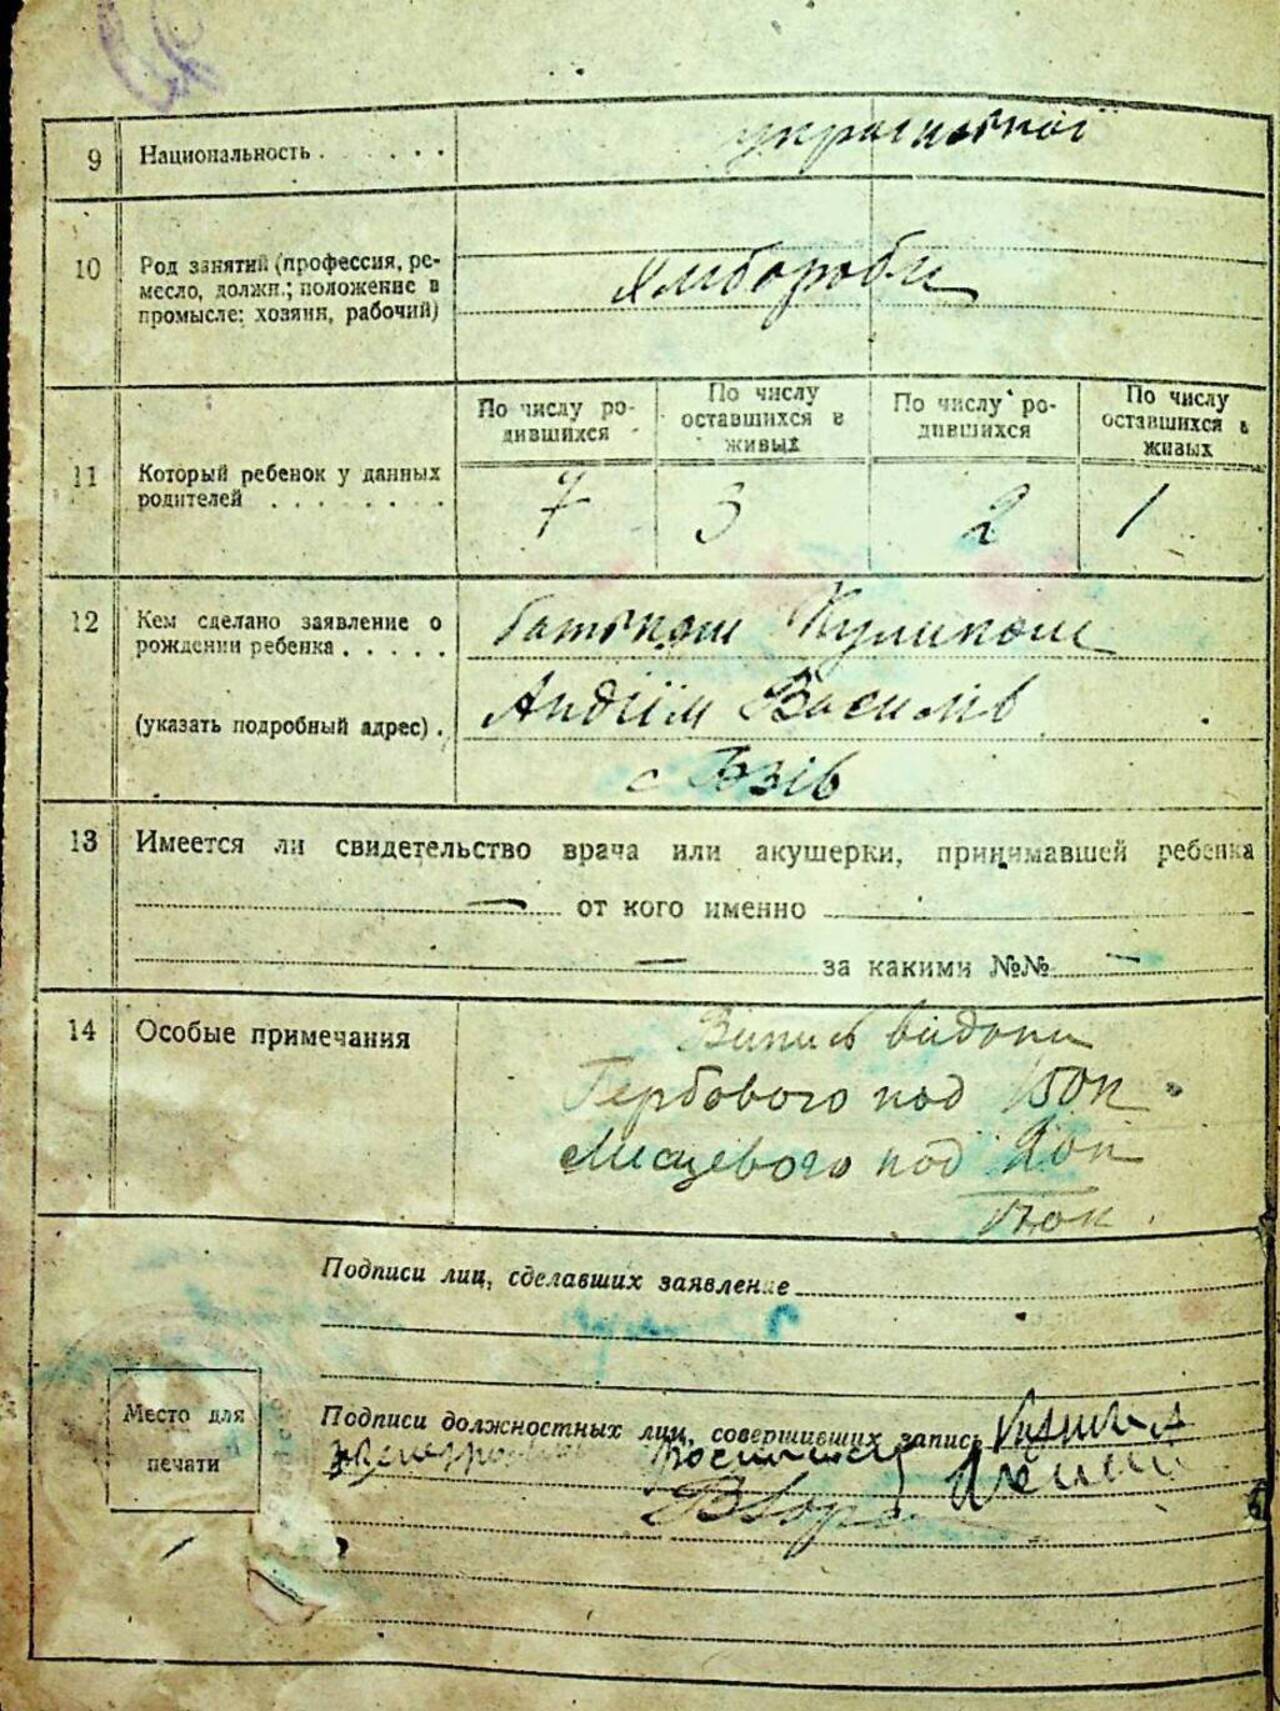 9 Национальность . . . . . . української
10 Род занятий (профессия, ре-
месло, должн.; положение в
промысле: хозяин, рабочий)
Хлібороби
По числу ро-
дившихся
По числу
оставшихся в
живых
По числу ро-
дившихся
По числу
оставшихся в
живых
11 Который ребенок у данных
родителей . . . . . . . .
7 3 2 1
12 Кем сделано заявление о
рождении ребенка . . . . .
(указать подробный адрес) .
батьком Куликом
Андіїм Василів
с Бзів
13 Имеется ли свидетельство врача или акушерки, принимавшей ребенка
— от кого именно
— за какими №№ —
14 Особые примечания
видани
Гербового под 150к
Месцевого под 20к
170к.
Подписи лиц, сделавших заявление
Место для
печати
Подписи должностных лиц, совершивших запись